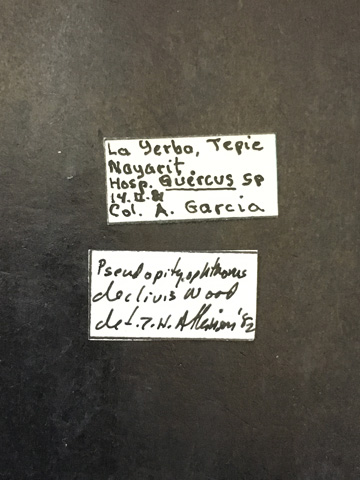 La Yerba, Tepic
Nayarit.
Hosp. Quercus sp
14.II.81
Col. A. Garcia
Pseudopityophthorus
declivis Wood
det. T. H. Atkinson '82